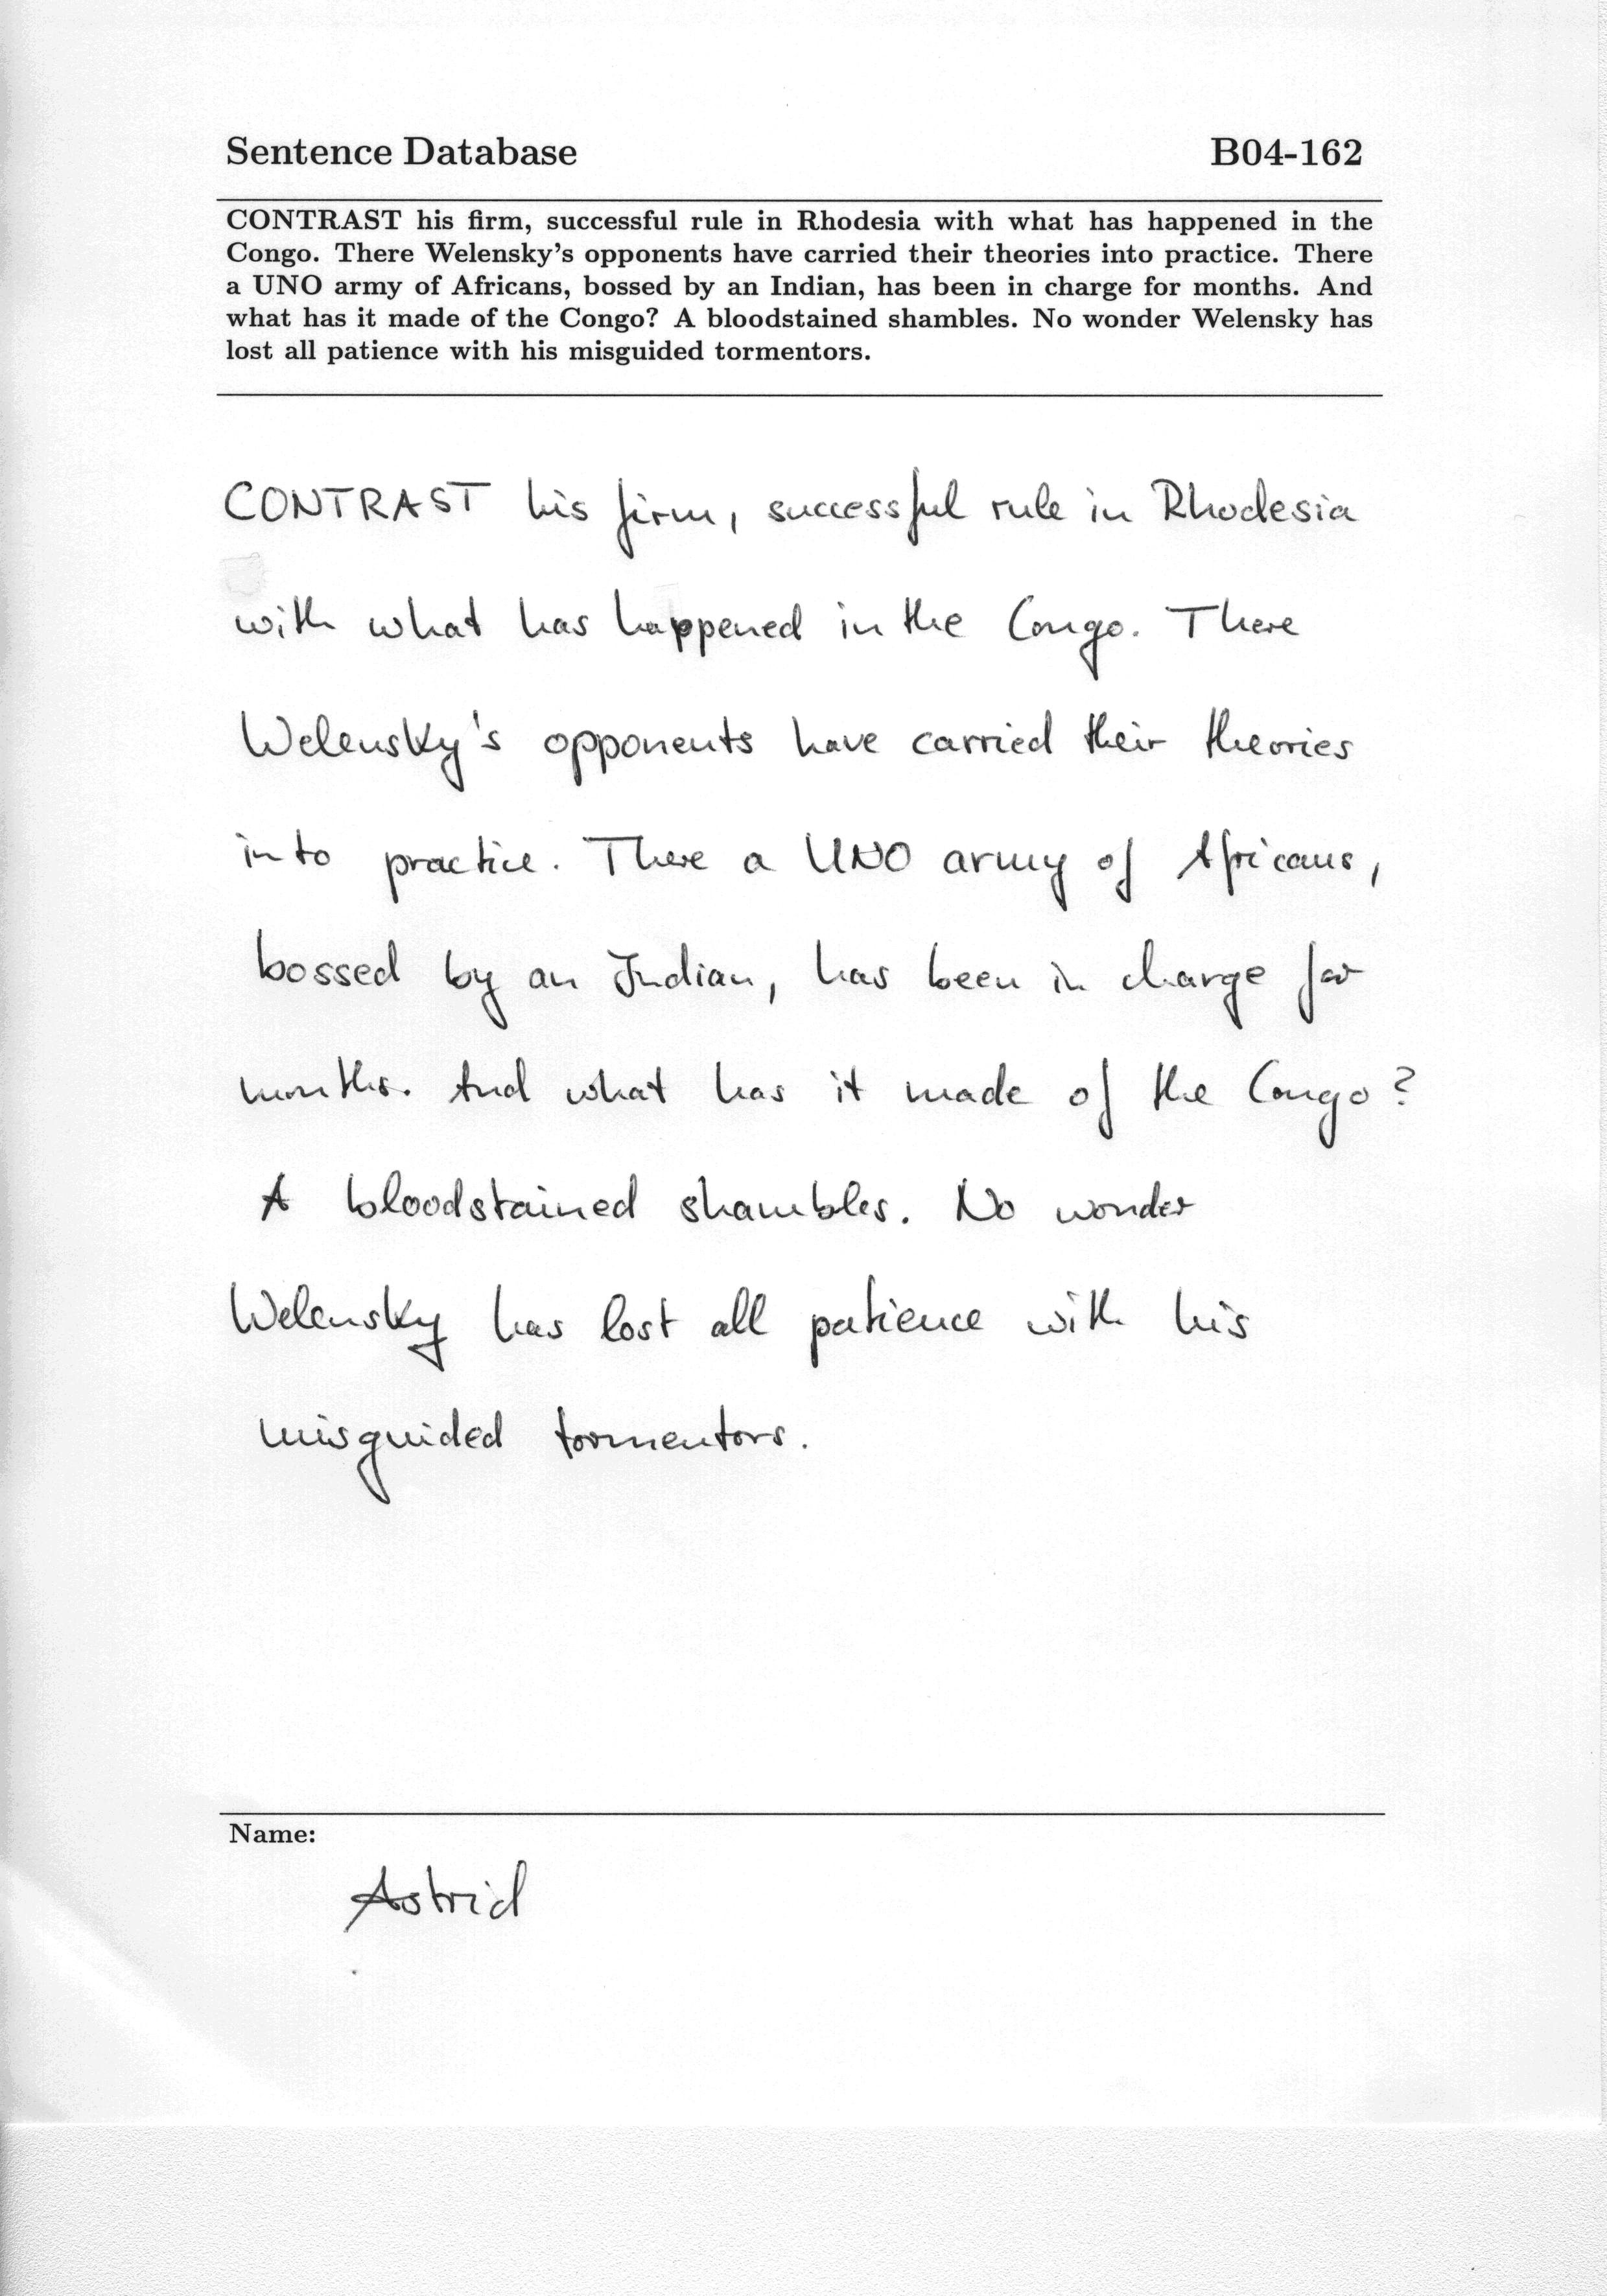 Sentence Database B04-162
CONTRAST his firm, successful rule in Rhodesia with what has happened in the
Congo. There Welensky's opponents have carried their theories into practice. There
a UNO army of Africans, bossed by an Indian, has been in charge for months. And
what has it made of the Congo? A bloodstained shambles. No wonder Welensky has
lost all patience with his misguided tormentors.
CONTRAST his firm, successful rule in Rhodesia
with what has happened in the Congo. There
Welensky's opponents have carried their theories
into practice. There a UNO army of Africans,
bossed by an Indian, has been in charge for
months. And what has it made of the Congo?
A bloodstained shambles. No wonder
Welensky has lost all patience with his
misguided tormentors.
Name:
Astrid